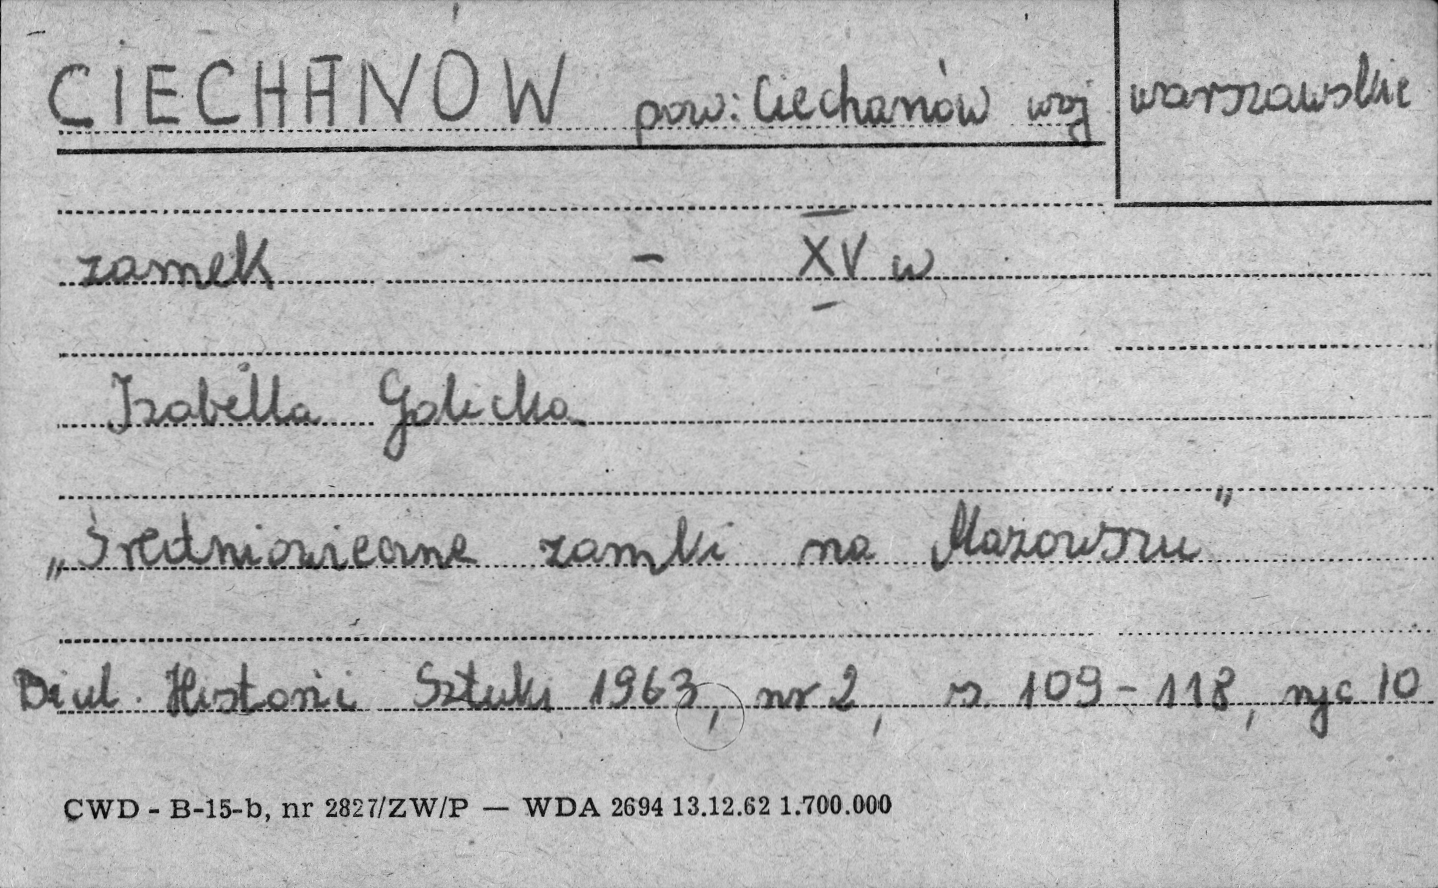 CIECHANÓW pow: Ciechanów woj warszawskie
zamek - XV w
Izabella Galicka
„Średniowieczne zamki na Mazowszu"
Biul. Historii Sztuki 1963, nr 2, s. 109-118, ryc 10
CWD - B-15-b, nr 2827/ZW/P — WDA 2694 13.12.62 1.700.000